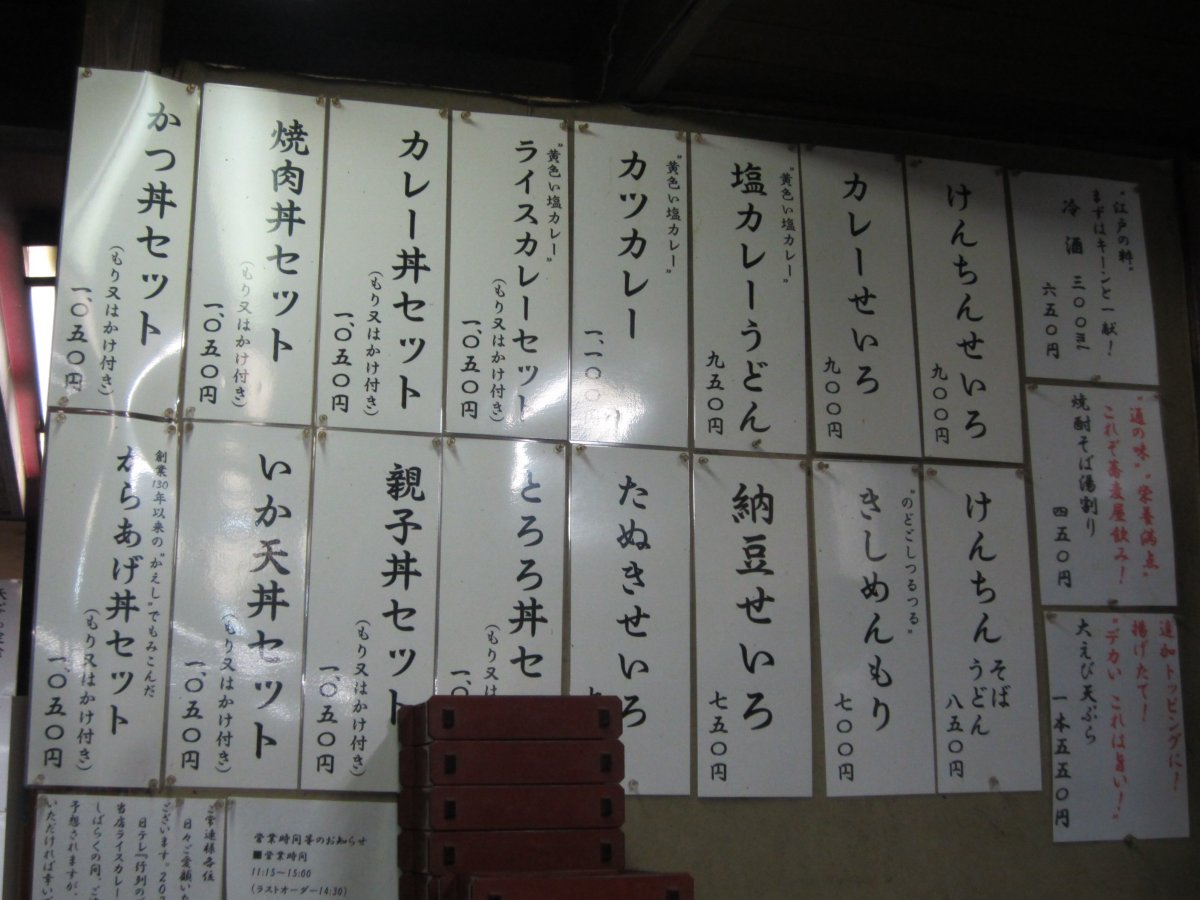 "江戸の粋"
まずはキーンと一献!
冷酒 三〇〇ml
六五〇円
"通の味" "栄養満点"
これぞ蕎麦屋飲み!
焼酎そば湯割り
四五〇円
追加トッピングに!
揚げたて!
"デカい これは旨い!"
大えび天ぷら
一本五五〇円
けんちんせいろ
九〇〇円
カレーせいろ
九〇〇円
"黄色い塩カレー"
塩カレーうどん
九五〇円
"黄色い塩カレー"
カツカレー
一、一〇〇
"黄色い塩カレー"
ライスカレーセット
(もり又はかけ付き)
一、〇五〇円
カレー丼セット
(もり又はかけ付き)
一、〇五〇円
焼肉丼セット
(もり又はかけ付き)
一、〇五〇円
かつ丼セット
(もり又はかけ付き)
一、〇五〇円
けんちん そば
うどん
八五〇円
"のどごしつるつる"
きしめんもり
七〇〇円
納豆せいろ
七五〇円
たぬきせいろ
とろろ丼セ
(もり又は
一、〇
親子丼セット
(もり又はかけ付き)
一、〇五〇円
いか天丼セット
(もり又はかけ付き)
一、〇五〇円
創業130年以来の"かえし"でもみこんだ
からあげ丼セット
(もり又はかけ付き)
一、〇五〇円
営業時間等のお知らせ
■営業時間
11:15〜15:00
(ラストオーダー14:30)
ご常連様各位
日々ご愛顧いた
ございます。20
日テレ「行列の
当店ライスカレー
しばらくの間、ご
予想されますが、
いただければ幸い